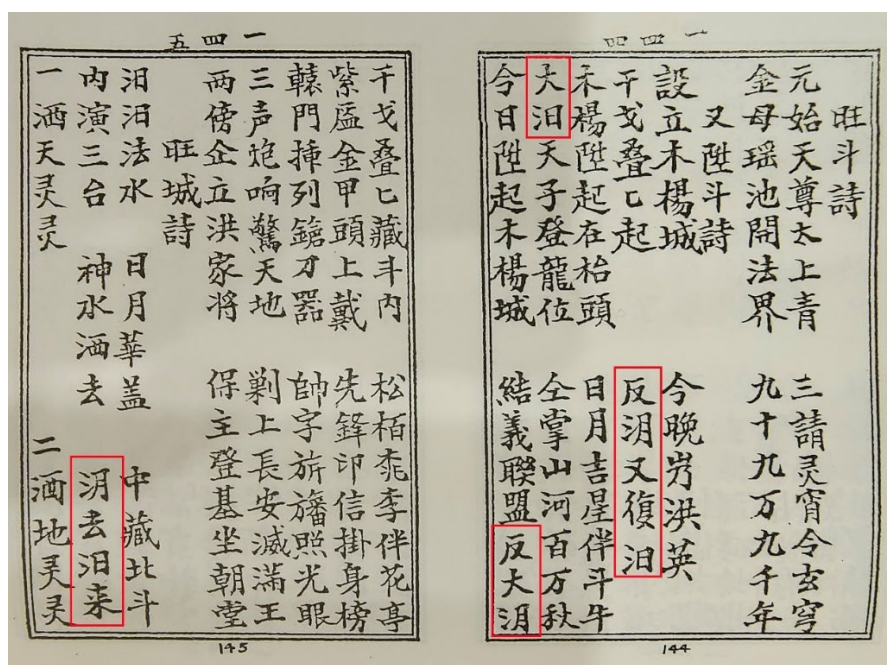 一四四
旺斗詩
元始天尊太上青 三請灵宵令玄穹
金母瑶池開法界 九十九万九千年
又陞斗詩
設立木楊城 今晚岁洪英
干戈叠匕起 反⿰氵月又復汨
木楊陞起在枱頭 日月吉星伴斗牛
大汨天子登龍位 仝掌山河百万秋
今日陞起木楊城 結義聯盟反大⿰氵月
144
一四五
干戈叠匕藏斗内 松栢桃李伴花亭
紫盔金甲頭上戴 先鋒印信掛身榜
轅門挿列鎗刀器 帥字旂旛照光眼
三声炮响驚天地 剿上長安滅滿王
两傍企立洪家将 保主登基坐朝堂
旺城詩
汨汨法水 日月華盖 中藏北斗
内演三台 神水洒去 ⿰氵月去汨来
一洒天灵灵 二洒地灵灵
145